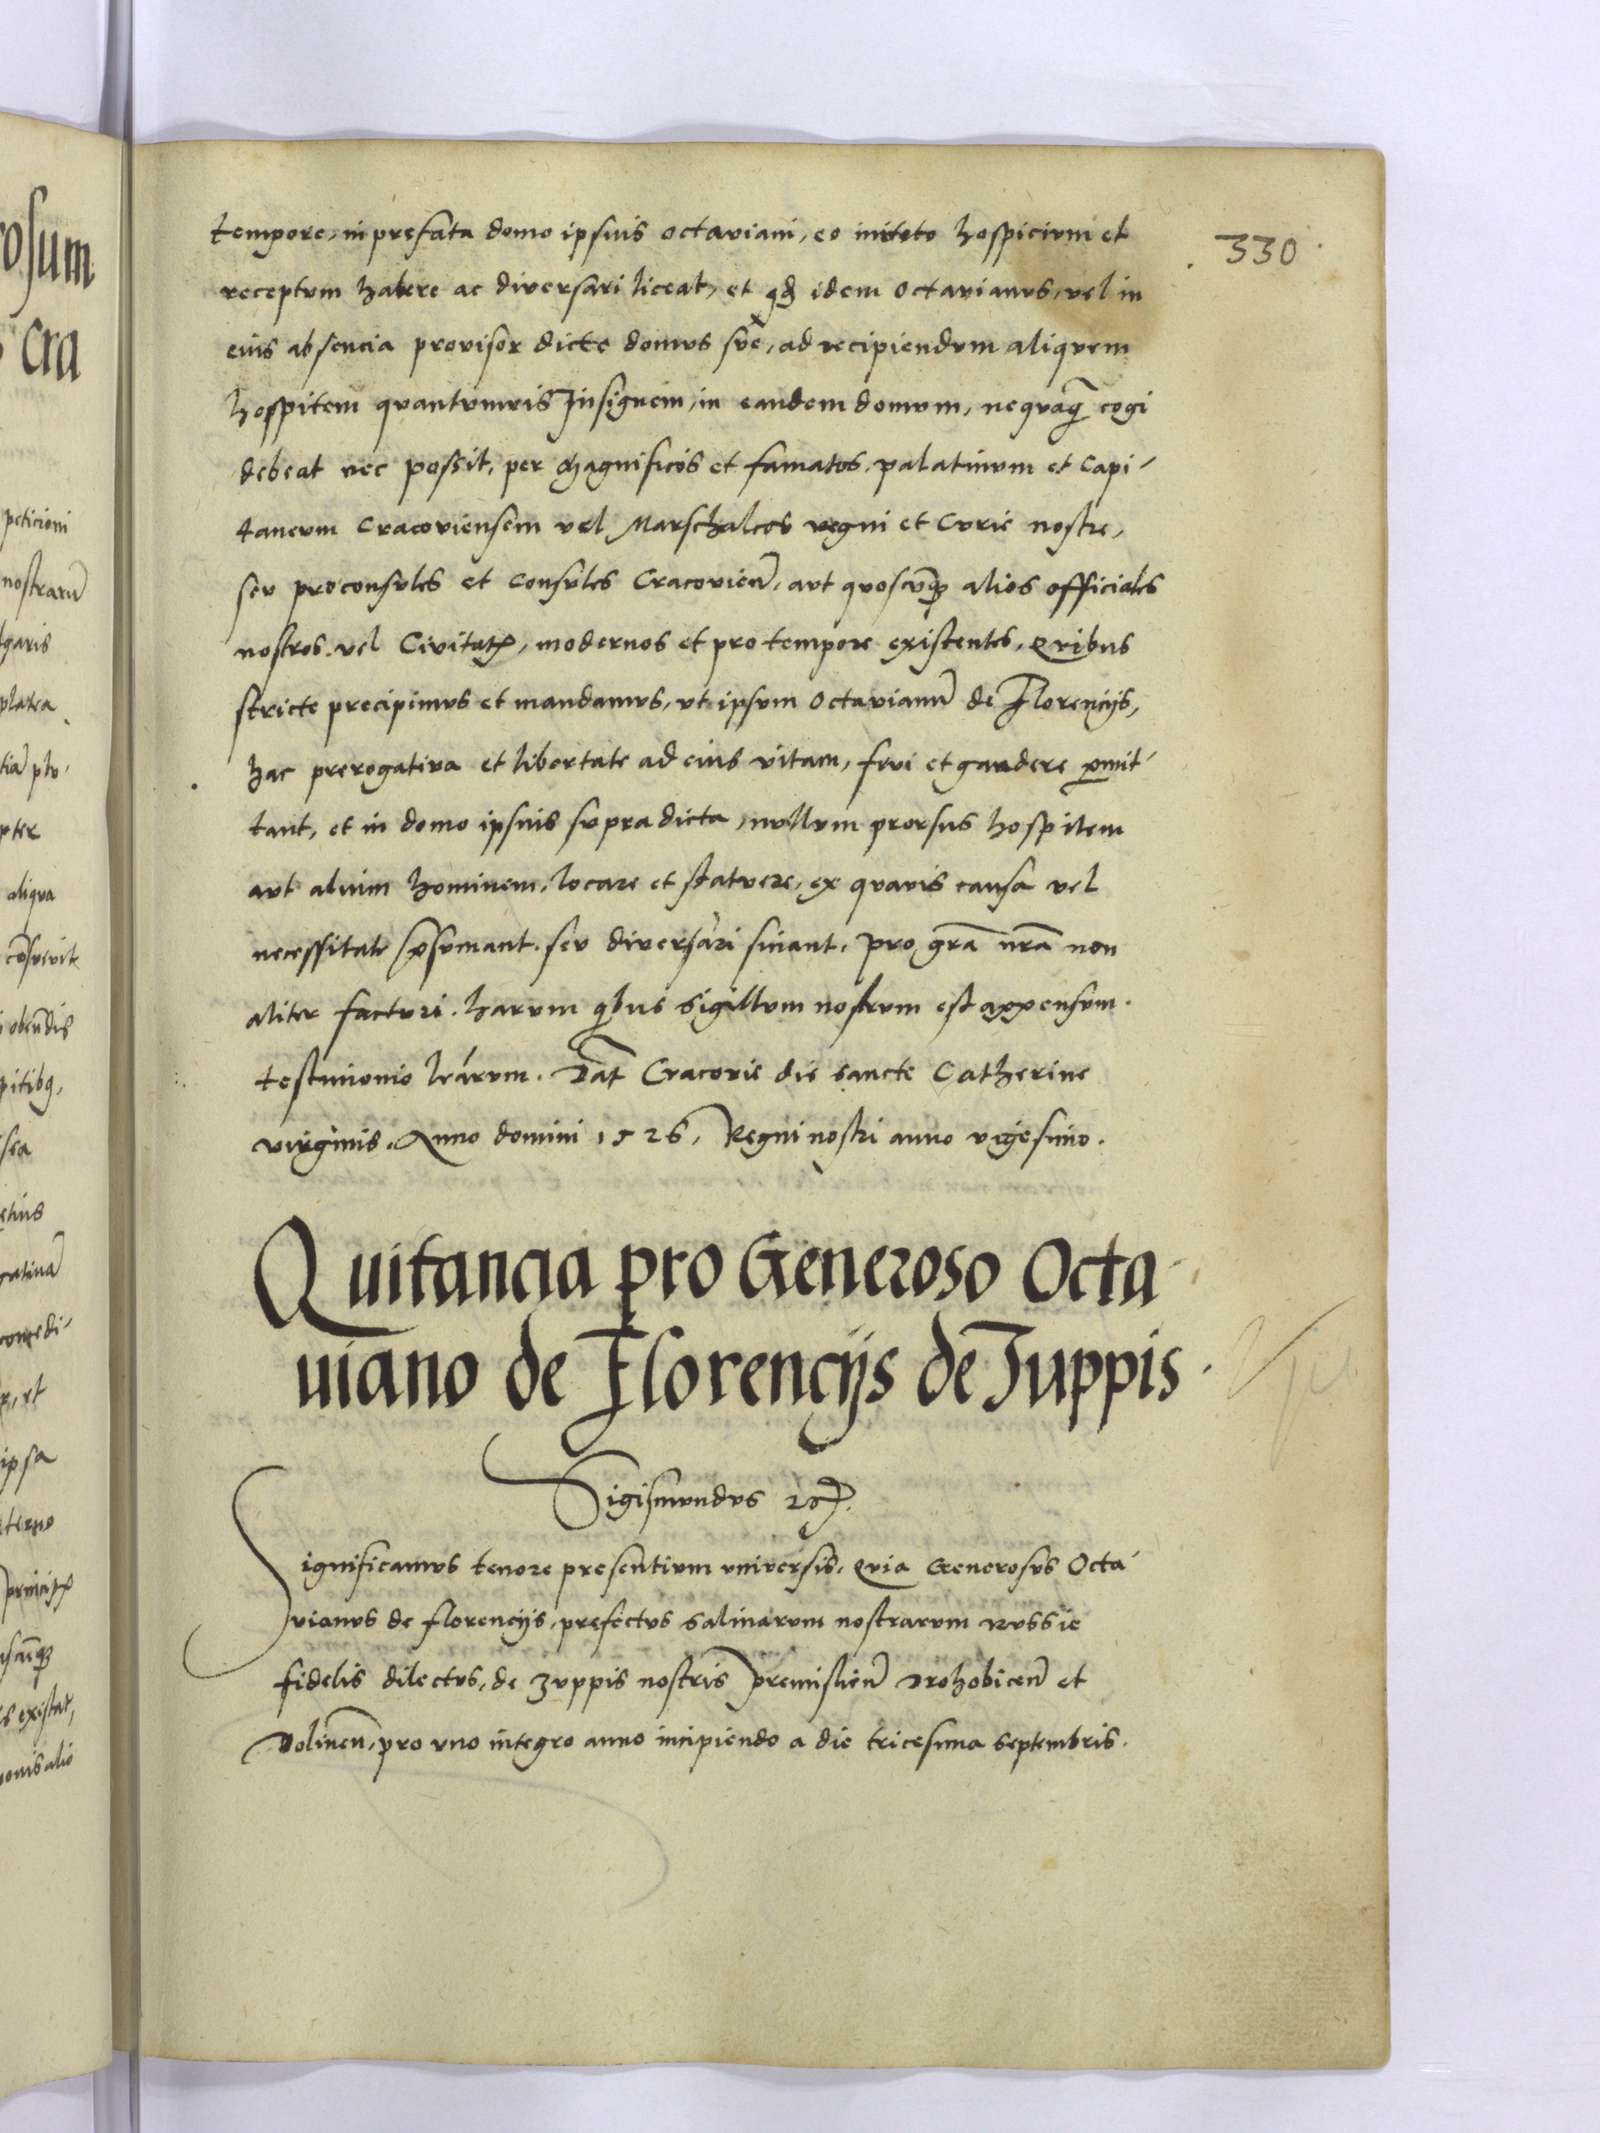 330
tempore, in prefata domo ipsius octaviani, eo invito hospicium et
receptum habere ac diversari liceat, et qd idem Octavianus, vel in
eius absencia provisor dicte domus sue, ad recipiendum aliquem
hospitem quantumvis Insignem, in eandem domum, nequaq̃ cogi
debeat nec possit, per Magnificos et famatos, palatinum et Capi-
taneum Cracoviensem vel Marschalcos regni et Curie nostre,
seu proconsules et Consules Cracovien̄, aut quoscūqꝫ alios officiales
nostros, vel Civitatꝭ, modernos et pro tempore existentes, Quibus
stricte precipimus et mandamus, ut ipsum Octavianū de Florencijs,
hac prerogativa et libertate ad eius vitam, frui et gaudere ꝑmit-
tant, et in domo ipsius supra dicta, nullum prorsus hospitem
aut alium hominem, locare et statuere, ex quavis causa vel
necessitate p̄sumant. seu diversari sinant, pro gr̄a nr̄a non
aliter facturi. harum qbus sigillum nostrum est appensum.
testimonio lrārum. Dat̄ Cracovie die sancte Catherine
virginis. Anno domini 1526, Regni nostri anno vigesimo.
Quitancia pro Generoso Octa
viano de Florencijs de Zuppis
Sigismundus rꝫ.
Significamus tenore presentium universis, Quia Generosus Octa-
vianus de florencijs, prefectus salinarum nostrarum Russie
fidelis dilectus, de zuppis nostris Premislien̄ Drohobicen̄ et
Dolinen̄, pro uno integro anno incipiendo a die tricesima septembris.
osum
Cra
peticioni
nostrarū
lgaris
platea
aliqua
pitibꝫ,
ipsa
s existat,